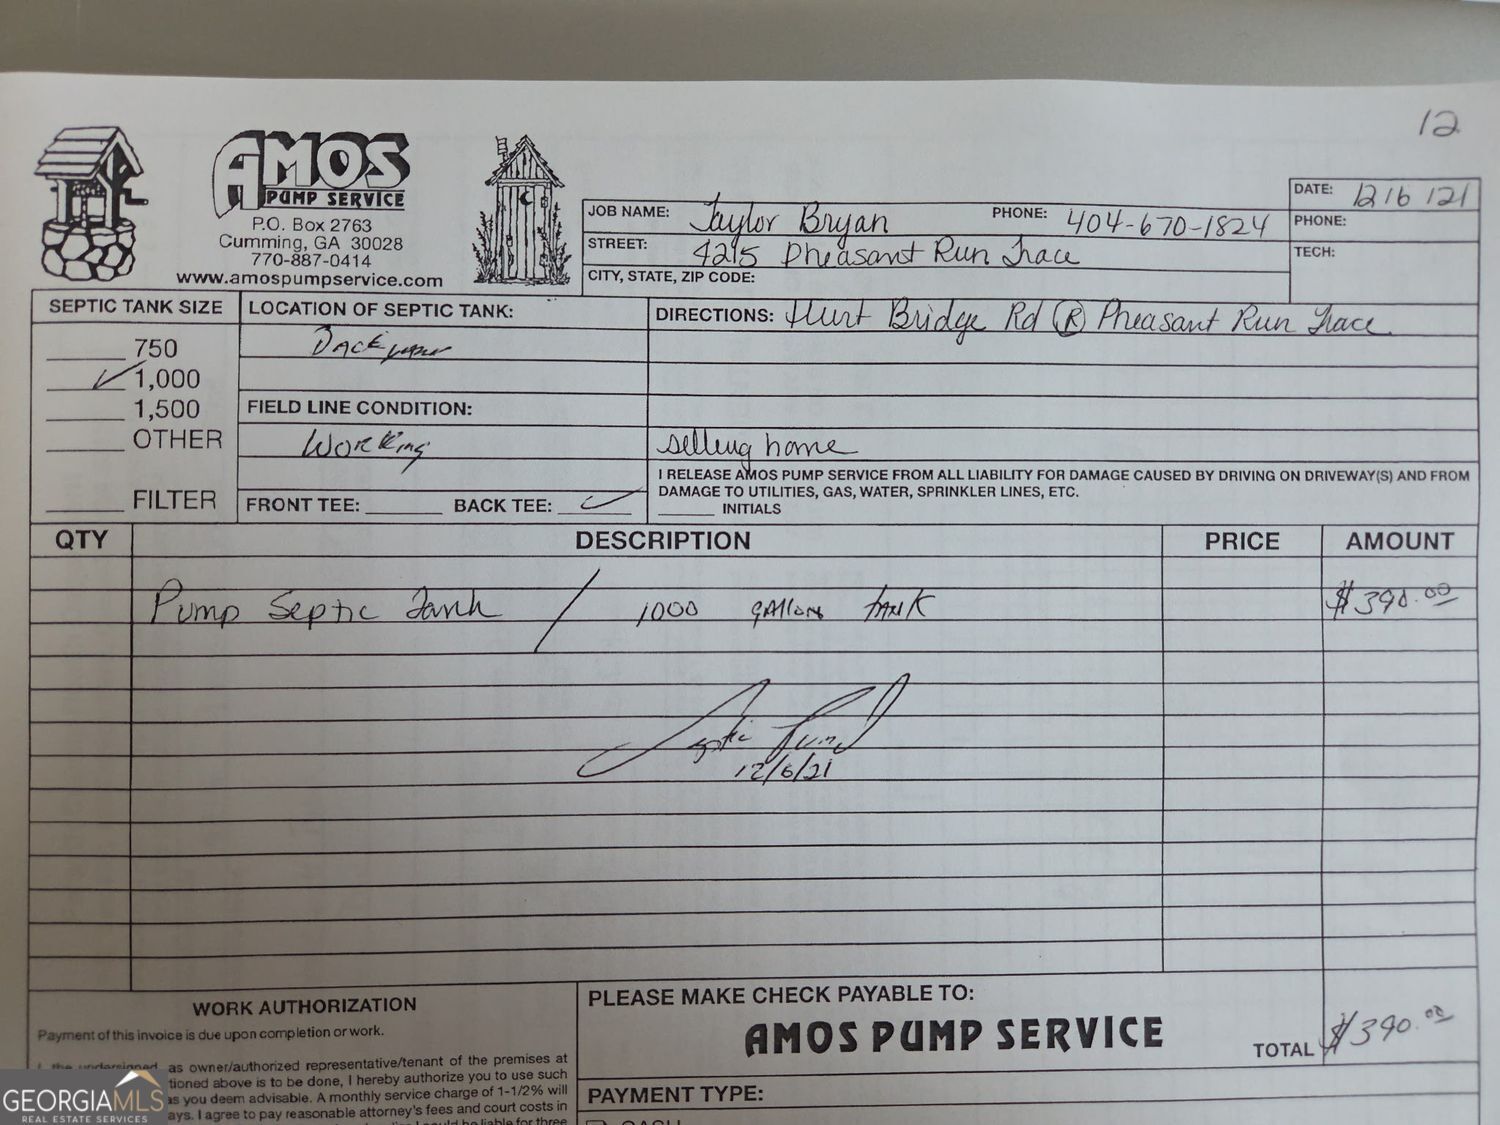 12
AMOS
PUMP SERVICE
P.O. Box 2763
Cumming, GA 30028
770-887-0414
www.amospumpservice.com
JOB NAME: Taylor Bryan PHONE: 404-670-1824
STREET: 4215 Pheasant Run Trace
CITY, STATE, ZIP CODE:
DATE: 12/6/21
PHONE:
TECH:
SEPTIC TANK SIZE
750
1,000
1,500
OTHER
FILTER
LOCATION OF SEPTIC TANK:
Back
FIELD LINE CONDITION:
Working
FRONT TEE: BACK TEE:
DIRECTIONS: Hurt Bridge Rd (R) Pheasant Run Trace
selling home
I RELEASE AMOS PUMP SERVICE FROM ALL LIABILITY FOR DAMAGE CAUSED BY DRIVING ON DRIVEWAY(S) AND FROM
DAMAGE TO UTILITIES, GAS, WATER, SPRINKLER LINES, ETC.
INITIALS
QTY DESCRIPTION PRICE AMOUNT
Pump Septic Tank / 1000 gallon tank $390.00
12/6/21
WORK AUTHORIZATION
Payment of this invoice is due upon completion or work.
I, the undersigned, as owner/authorized representative/tenant of the premises at
tioned above is to be done, I hereby authorize you to use such
as you deem advisable. A monthly service charge of 1-1/2% will
ays. I agree to pay reasonable attorney's fees and court costs in
be liable for three
PLEASE MAKE CHECK PAYABLE TO:
AMOS PUMP SERVICE
TOTAL $390.00
PAYMENT TYPE:
CASH
GEORGIAMLS
REAL ESTATE SERVICES